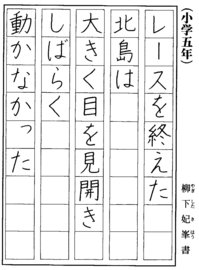 （小学五年）
レースを終えた
北島は
大きく目を見開き
しばらく
動かなかった
柳下妃峯書